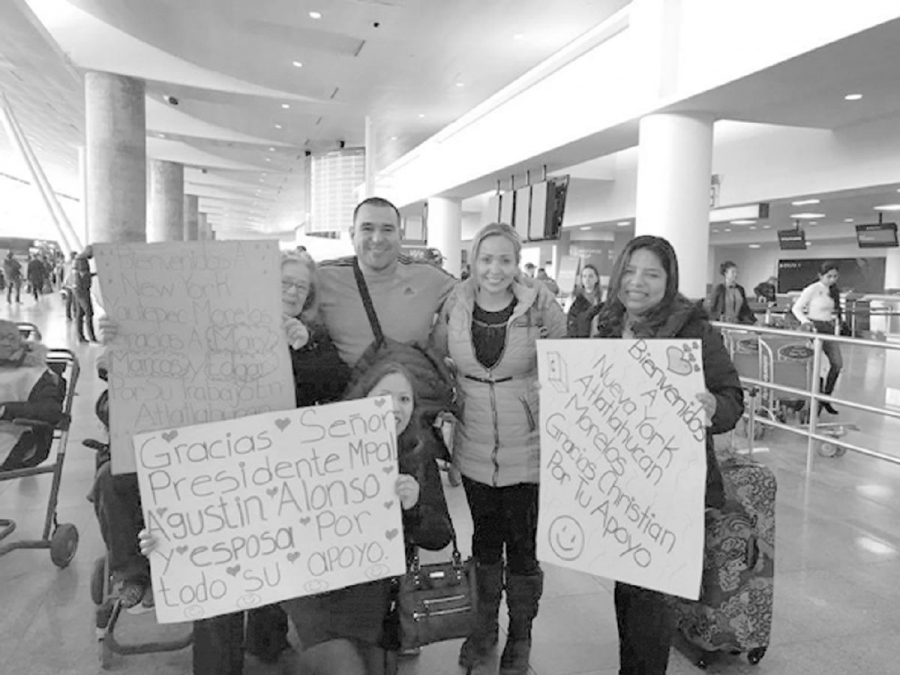 Bienvenidos A
New York
Yautepec Morelos
Gracias A Mary
Marcos y Edgar
Por Su Trabajo En
Atlatlahucan
Gracias Señor
Presidente Mpal
Agustin Alonso
y esposa Por
todo su apoyo.
Bienvenidos
A
Nueva York
Atlatlahucan
Morelos
Gracias Christian
Por Tu Apoyo